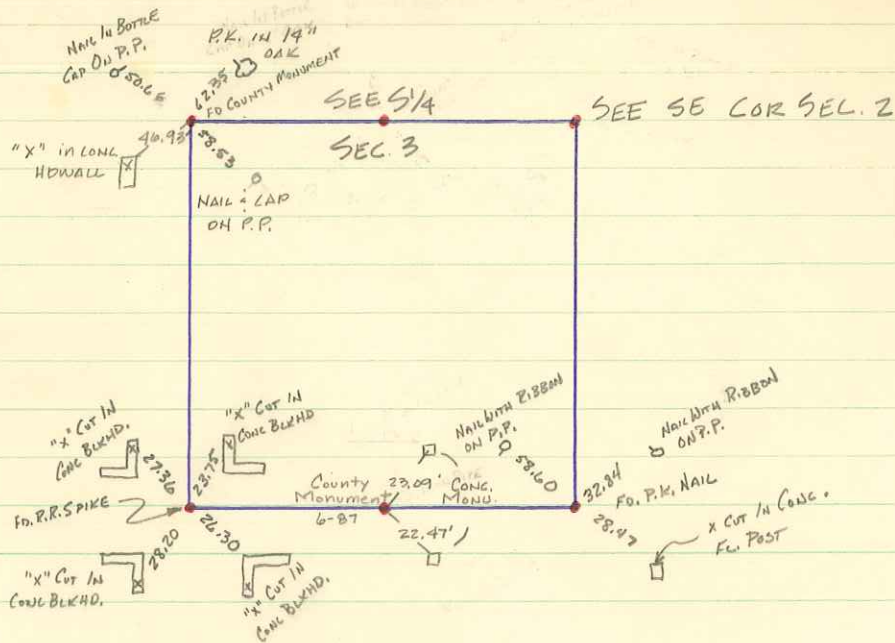 NAIL IN BOTTLE
CAP ON P.P.
50.65
P.K. IN 14"
OAK
62.35
FD COUNTY MONUMENT
46.93
"X" in CONC
HDWALL
58.53
NAIL & CAP
ON P.P.
SEE S1/4
SEC. 3
SEE SE COR SEC. 2
"X" CUT IN
CONC BLKHD.
27.36
23.75
"X" CUT IN
CONC BLKHD
FD. R.R. SPIKE
28.20
26.30
"X" CUT IN
CONC BLKHD.
"X" CUT IN
CONC BLKHD.
County
Monument
6-87
23.09'
CONC.
MONU.
22.47'
NAIL WITH RIBBON
ON P.P.
58.60
NAIL WITH RIBBON
ON P.P.
32.84
FD. P.K. NAIL
28.47
X CUT IN CONC.
FL. POST